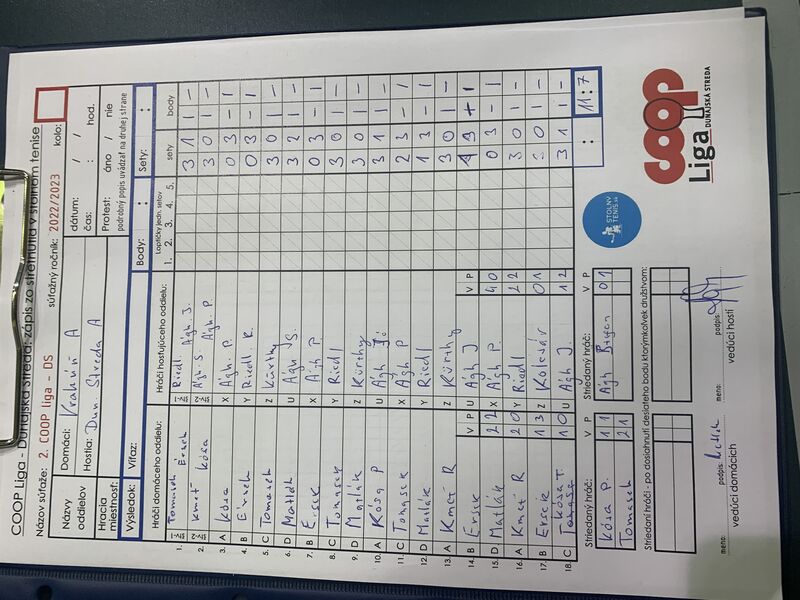 COOP Liga - Dunajská Streda: zápis zo stretnutia v stolnom tenise
Názov súťaže: 2. COOP liga - DS súťažný ročník: 2022/2023 kolo:
Názvy oddielov
Domáci: Kráľov A
Hostia: Dun. Streda A
dátum: / /
čas: : hod.
Hracia miestnosť:
Protest: áno / nie
podrobný popis uvádzať na druhej strane
Výsledok: Víťaz: Body: : Sety: :
Hráči domáceho oddielu: Hráči hosťujúceho oddielu: Loptičky jedn. setov sety body
1. 2. 3. 4. 5.
1. Tomašek Ersek Riedl Ágh J. 3 1 1 -
2. Kmeť Kósa Ágh S. Ágh P. 3 0 1 -
3. A Kósa X Ágh P. 0 3 - 1
4. B Ersek Y Riedl R. 0 3 - 1
5. C Tomasek Z Kürthy 3 0 1 -
6. D Matlák U Ágh S. 3 2 1 -
7. B Ersek X Ágh P 0 3 - 1
8. C Tomasek Y Riedl 3 0 1 -
9. D Matlák Z Kürthy 3 0 1 -
10. A Kósa P U Ágh J. 3 1 1 -
11. C Tomasek X Ágh P 2 3 - 1
12. D Matlák Y Riedl 1 3 - 1
13. A Kmeť R Z Kürthy 3 0 1 -
14. B Ersek V P U Ágh J V P
15. D Matlák 2 2 X Ágh P. 4 0 0 3 - 1
16. A Kmeť R 2 0 Y Riedl 2 2 3 0 1 -
17. B Ersek 1 3 Z Kolesár 0 1 3 0 1 -
18. C Kósa T. 1 0 U Ágh J. 1 2 3 1 1 -
: 11:7
Striedaný hráč: V P Striedaný hráč: V P
Kósa P. 1 1 Ágh 0 1
Tomasek 2 1
Striedaní hráči - po dosiahnutí desiateho bodu ktorýmkoľvek družstvom:
meno: podpis:
vedúci domácich
meno: podpis:
vedúci hostí
STOLNÝ
TENIS.sk
coop
Liga DUNAJSKÁ STREDA